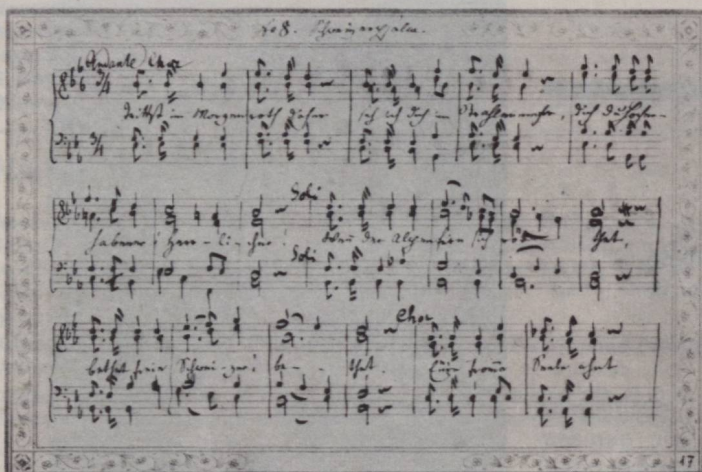 No 8. Schweizerpsalm.
Andante Chor
Trittst im Morgenroth daher
seh' ich dich im Strahlenmeer, dich du hoher-
habener! Herr-licher!
Soli
Wenn der Alpenfirn sich rö that,
Soli
betet freie Schwei-zer! be-that.
Chor
Eure fromme Seele ahnt
17